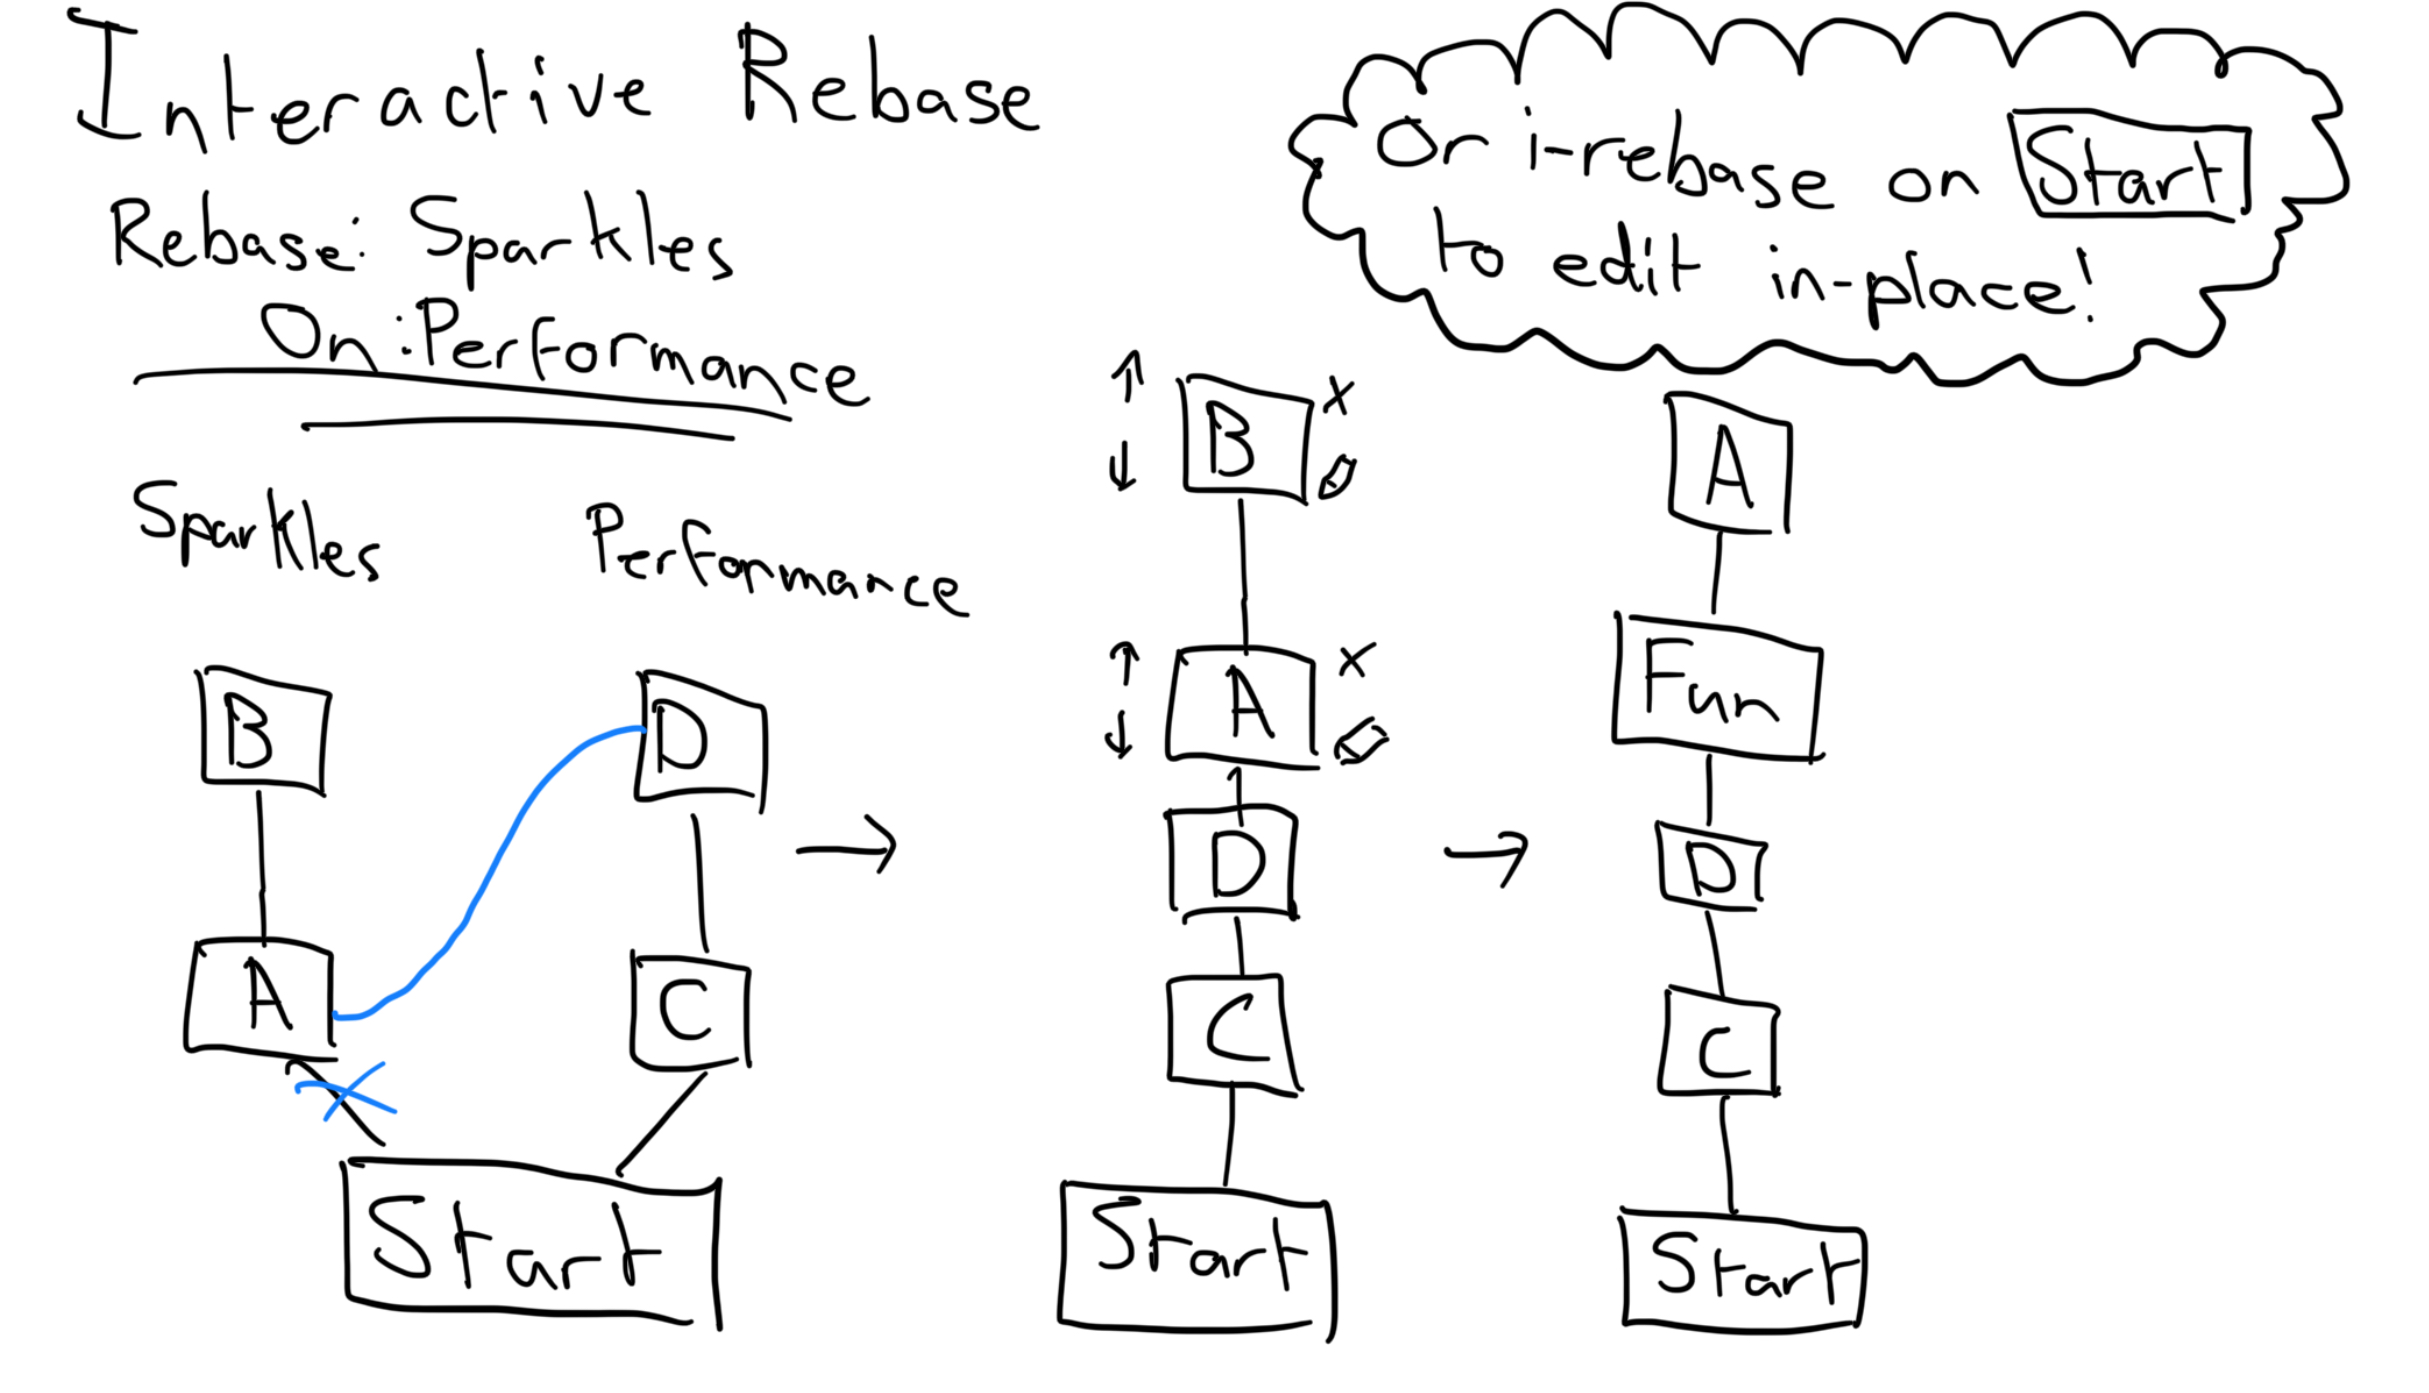 Interactive Rebase
Rebase: Sparkles
On: Performance
Or i-rebase on Start
to edit in-place!
Sparkles
Performance
B
A
D
C
Start
B
A
D
C
Start
A
Fun
D
C
Start